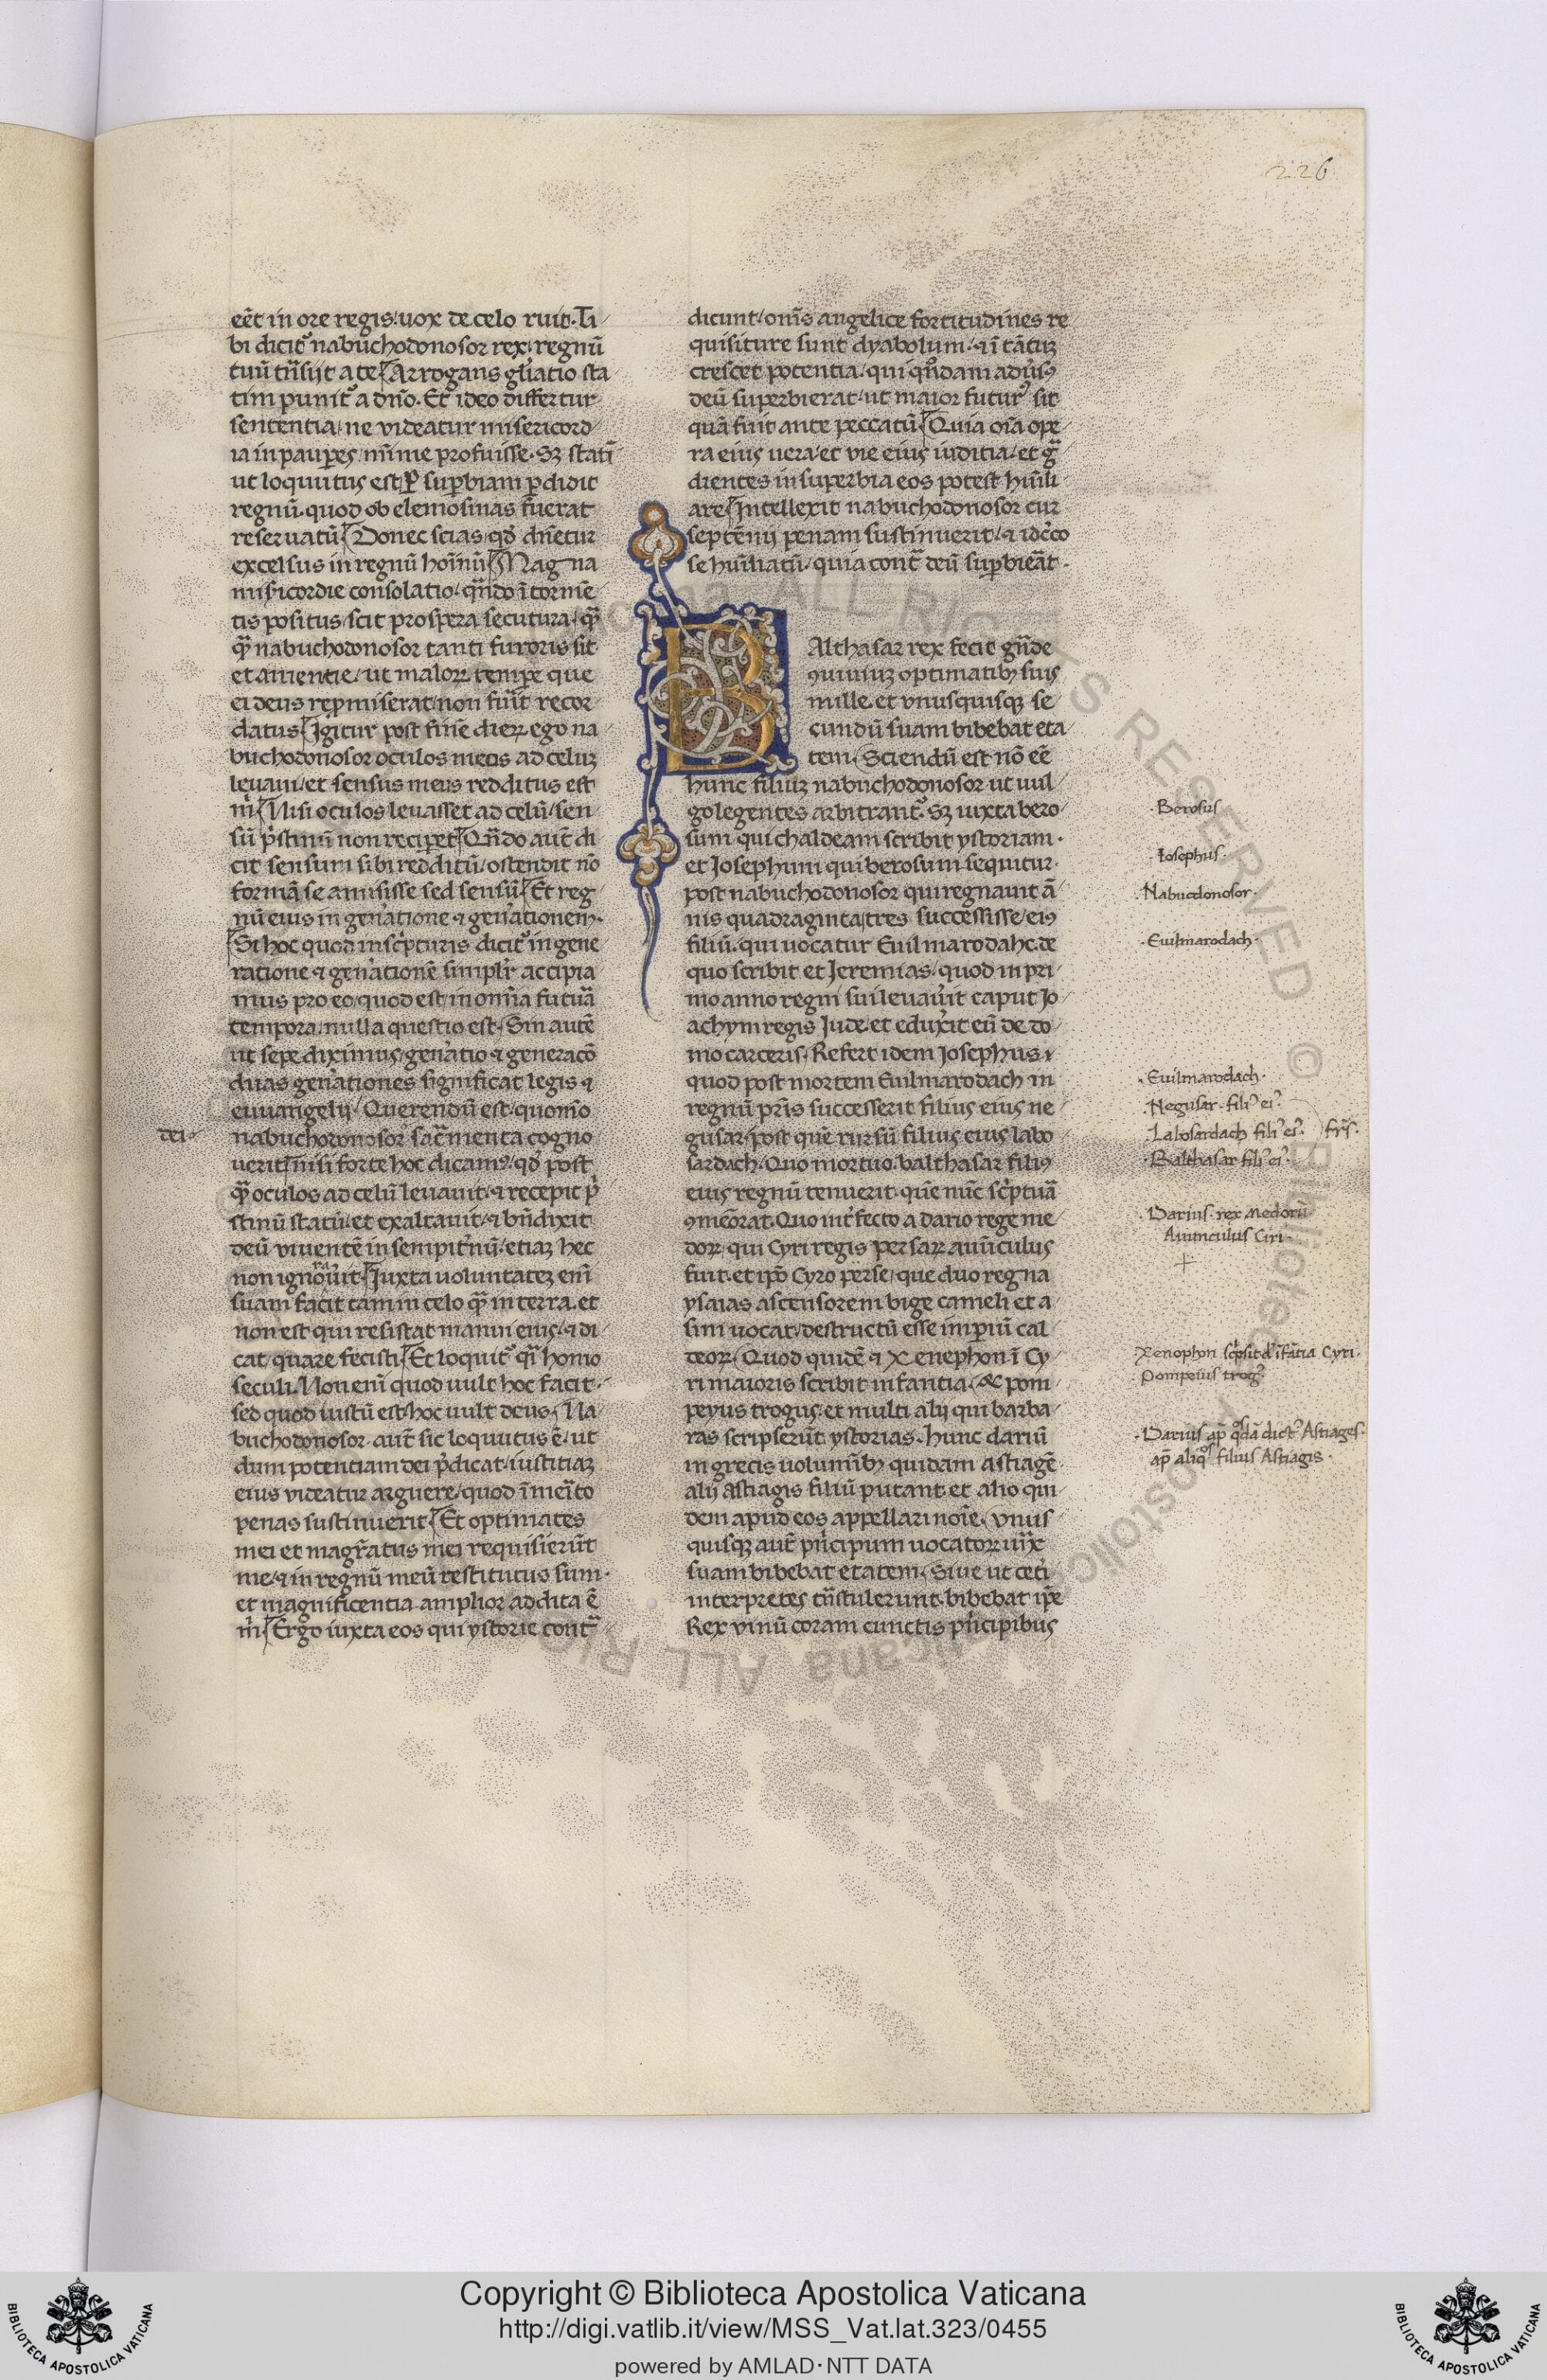 226
eēt in ore regis uox de celo ruit. Ti
bi dicit᷒ nabuchodonosor rex regnū
tuū tn̄sijt a te Arrogans gl̄iatio sta
tim punit᷒ a dn̄o. Et ideo differtur
sententia ne videatur misericord
ia in paupes mīme profuisse. Sꝫ statī
ut loquutus est ꝑ suꝑbiam ꝑdidit
regnū quod ob elemosinas fuerat
reseruatū Donec scias qđ dn̄etur
excelsus in regnū hoīnū Magna
misicordie consolatio qn̄do ī tormē
tis positus scit prospera secutura q̄
q̄ nabuchodonosor tanti furoris sit
et amentie ut malorꝝ tempe que
ei deus repromiserat non fuīt recor
datus Igitur post finē dierꝝ ego na
buchodonosor oculos meos ad celuꝫ
leuaui et sensus meus redditus est
m̄ Nisi oculos leuasset ad celū sen
sū p̄stinū non reciperet Qn̄do aut̄ di
cit sensum sibi redditū ostendit nō
formā se amisisse sed sensū Et reg
nū eius in gen̄atione ⁊ gen̄ationem.
Si hoc quod in sc̄pturis dicit᷒ in gene
ratione ⁊ gen̄ationē simpl̄r accipia
mus pro eo quod est in om̄ia futūa
tempora nulla questio est Sin autē
ut sepe diximus gen̄atio ⁊ generacō
duas gen̄ationes significat legis ⁊
euuangelij Querendū est quomō
dei
nabuchodonosor sac̄menta cogno
uerit nisi forte hoc dicam᷒ qđ post
q̄ oculos ad celū leuauit ⁊ recepit p̄
stinū statū et exaltauit ⁊ bn̄dixit
deū viuentē in sempit̄nū etiaꝫ hec
non ignorauīt Iuxta uoluntateꝫ enī
suam facit tam in celo q̄ in terra. et
non est qui resistat manui eius ⁊ di
cat quare fecisti Et loquit᷒ q̄i homo
seculi. Non enī quod uult hoc facit
sed quod iustū est hoc uult deus. Na
buchodonosor aut̄ sic loquutus ē ut
dum potentiam dei p̄dicat iustitiaꝫ
eius videatur arguere quod īmeīto
penas sustinuerit Et optimates
mei et magr̄atus mei requisierūt
me ⁊ in regnū meū restitutus sum.
et magnificentia amplior addita ē
m̄ Ergo iuxta eos qui ystorie cont̄
dicunt om̄s angelice fortitudines re
quisiture sunt dyabolum ⁊ ī tātuꝫ
crescet potentia qui qn̄dam adūs᷒
deū superbierat ut maior futur᷒ sit
quā fuit ante peccatū Quia oīa ope
ra eius uera et vie eius iuditia et ḡ
dientes in superbia eos potest hūili
are Intellexit nabuchodonosor cur
septēnij penam sustinuerit ⁊ idc̄co
se hūiliatū quia cont̄ deū suꝑbieāt.
BAlthasar rex fecit gn̄de
ꝯuiuiuꝫ optimatibꝫ suis
mille et vnusquisqꝫ se
cundū suam bibebat eta
tem Sciendū est nō eē
hunc filiuꝫ nabuchodonosor ut uul
go legentes arbitrant᷒. Sꝫ iuxta bero
sum qui chaldeam scribit ystoriam.
et Iosephum qui berosum sequitur.
post nabuchodonosor qui regnauit ā
nis quadraginta tres successisse ei᷒
filiū qui uocatur Euilmarodahc. de
quo scribit et Jeremias quod in pri
mo anno regni sui leuaūit caput Jo
achym regis Jude et eduxit eū de do
mo carceris Refert idem Josephus
quod post mortem Euilmarodach in
regnū pr̄is successerit filius eius ne
gusar post quē rursū filius eius labo
sardach Quo mortuo balthasar fili᷒
eius regnū tenuerit quē nūc sc̄ptuā
ꝯmēorat. Quo int̄fecto a dario rege me
dorꝝ qui Cyri regis persarꝝ auūculus
fuit. et ip̄o Cyro perse que duo regna
ysaias ascensorem bige cameli et a
sini uocat destructū esse imperiū cal
deorꝝ. Quod quidē ⁊ Xenephon ī Cy
ri maioris scribit infantia. ac pom
peyus trogus et multi alij qui barba
ras scripserūt ystorias. hunc dariū
in grecis uolumībꝫ quidam astiagē
alij astiagis filiū putant et alio qui
dem apud eos appellari noīe. vnus
quisqꝫ aut̄ pn̄cipum uocatorꝝ iūx
suam bibebat etatem Siue ut ceti
interpretes tn̄stulerunt bibebat ip̄e
Rex vinū coram cunctis pn̄cipibus
Berosus
Iosephus.
Nabucdonosor.
Euilmarodach.
Euilmarodach.
Negusar. fili᷒ ei᷒.
Labosardach fili᷒ ei᷒. fr̄s.
Balthasar fili᷒ ei᷒.
Darius rex medorū
Auunculus Ciri.
+
Xenophon sc̄psit d' īfātia Cyri.
Pompeius trog᷒
Darius ap̄ qᵒsdā dict᷒ Astiages.
ap̄ aliqᵒs filius Astiagis.
Copyright © Biblioteca Apostolica Vaticana
http://digi.vatlib.it/view/MSS_Vat.lat.323/0455
powered by AMLAD·NTT DATA
BIBLIOTECA APOSTOLICA VATICANA
BIBLIOTECA APOSTOLICA VATICANA